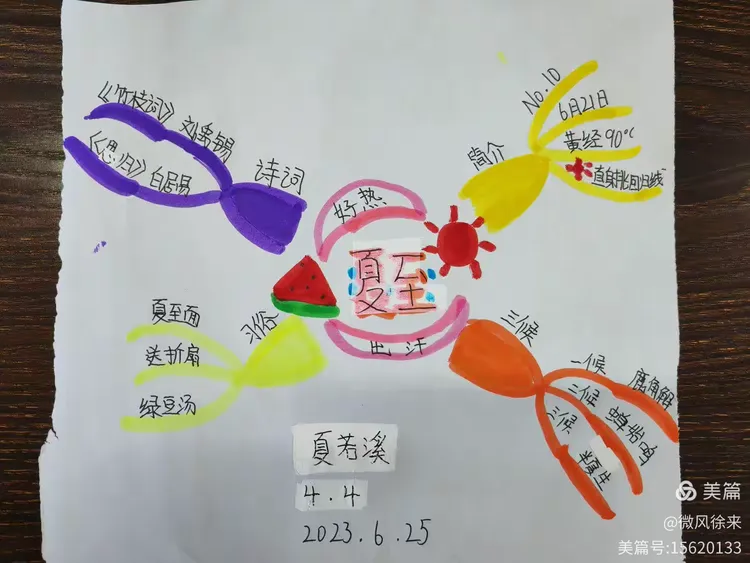 夏至
好热
出汗
简介
No.10
6月21日
黄经90°C
直射北回归线
三候
一候
鹿角解
二候
蝉始鸣
三候
半夏生
习俗
夏至面
送折扇
绿豆汤
诗词
《竹枝词》刘禹锡
《思归》白居易
夏若溪
4.4
2023.6.25
美篇
@微风徐来
美篇号:15620133